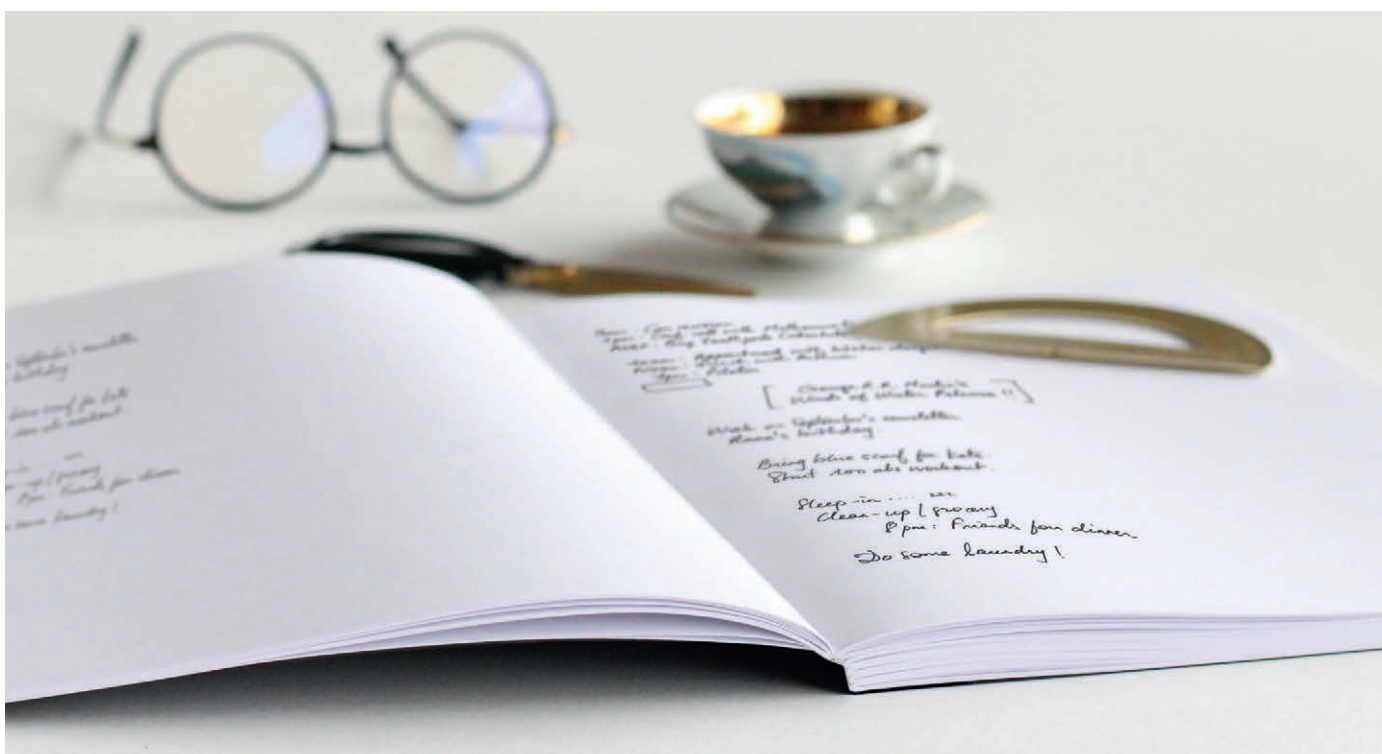 September's newsletter
birthday
blue scarf for kate
100 abs workout
up / grocery
8 pm: Friends for dinner
some laundry!
with
with
Pilates
[ George R. R. Martin's
Winds of Winter Release !! ]
Work on September's newsletter
Anna's birthday.
Bring blue scarf for kate.
Start 100 abs workout.
Sleep-in .... zzz
clean-up / grocery
8 pm: Friends for dinner
Do some laundry!